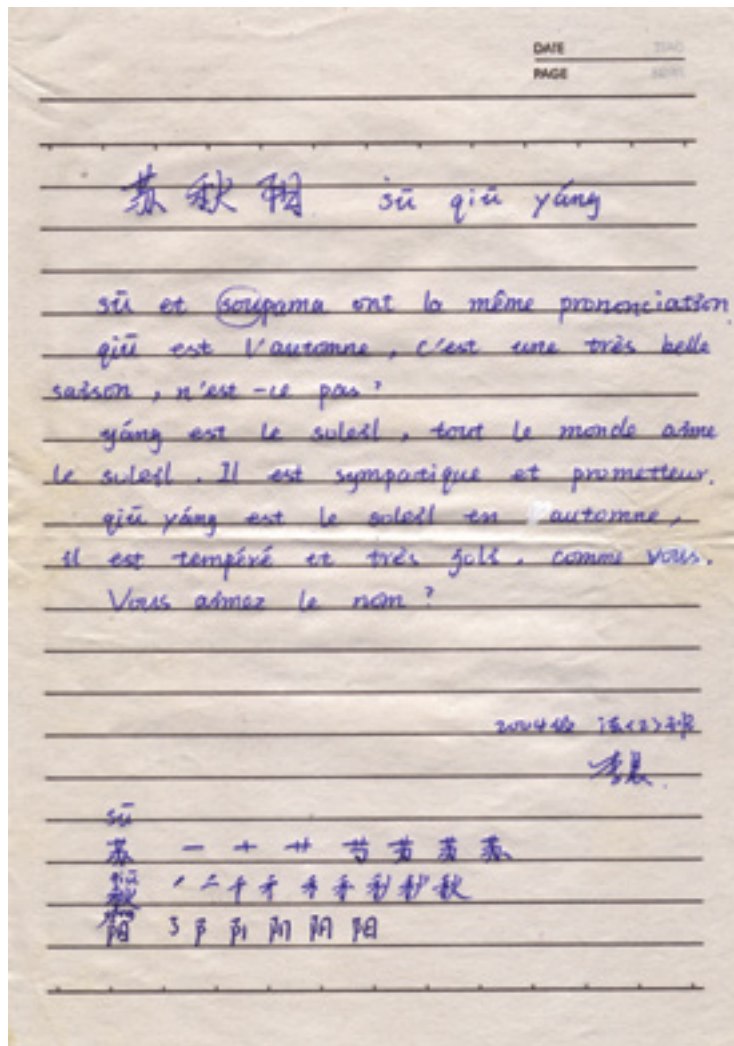 DATE
PAGE
苏 秋 阳 sū qiū yáng
sū et soupama ont la même prononciation
qiū est l'automne, c'est une très belle
saison, n'est-ce pas?
yáng est le soleil, tout le monde aime
le soleil. Il est sympatique et prometteur.
qiū yáng est le soleil en automne,
il est tempéré et très joli, comme vous.
Vous aimez le nom?
2004级 法(2)班
李晨
sū
苏 一 十 艹 艿 苏 苏
qiū
秋 ノ 二 千 禾 禾 秋
阳 阝 阳